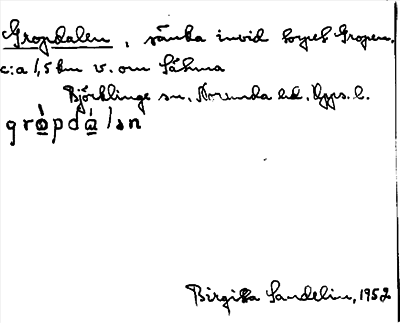 Gropdalen, sänka invid torpet Gropen,
c:a 1,5 km v. om Sähma
Björklinge sn, Norunda hd, Upps. l.
Birgitta Sandelin, 1952